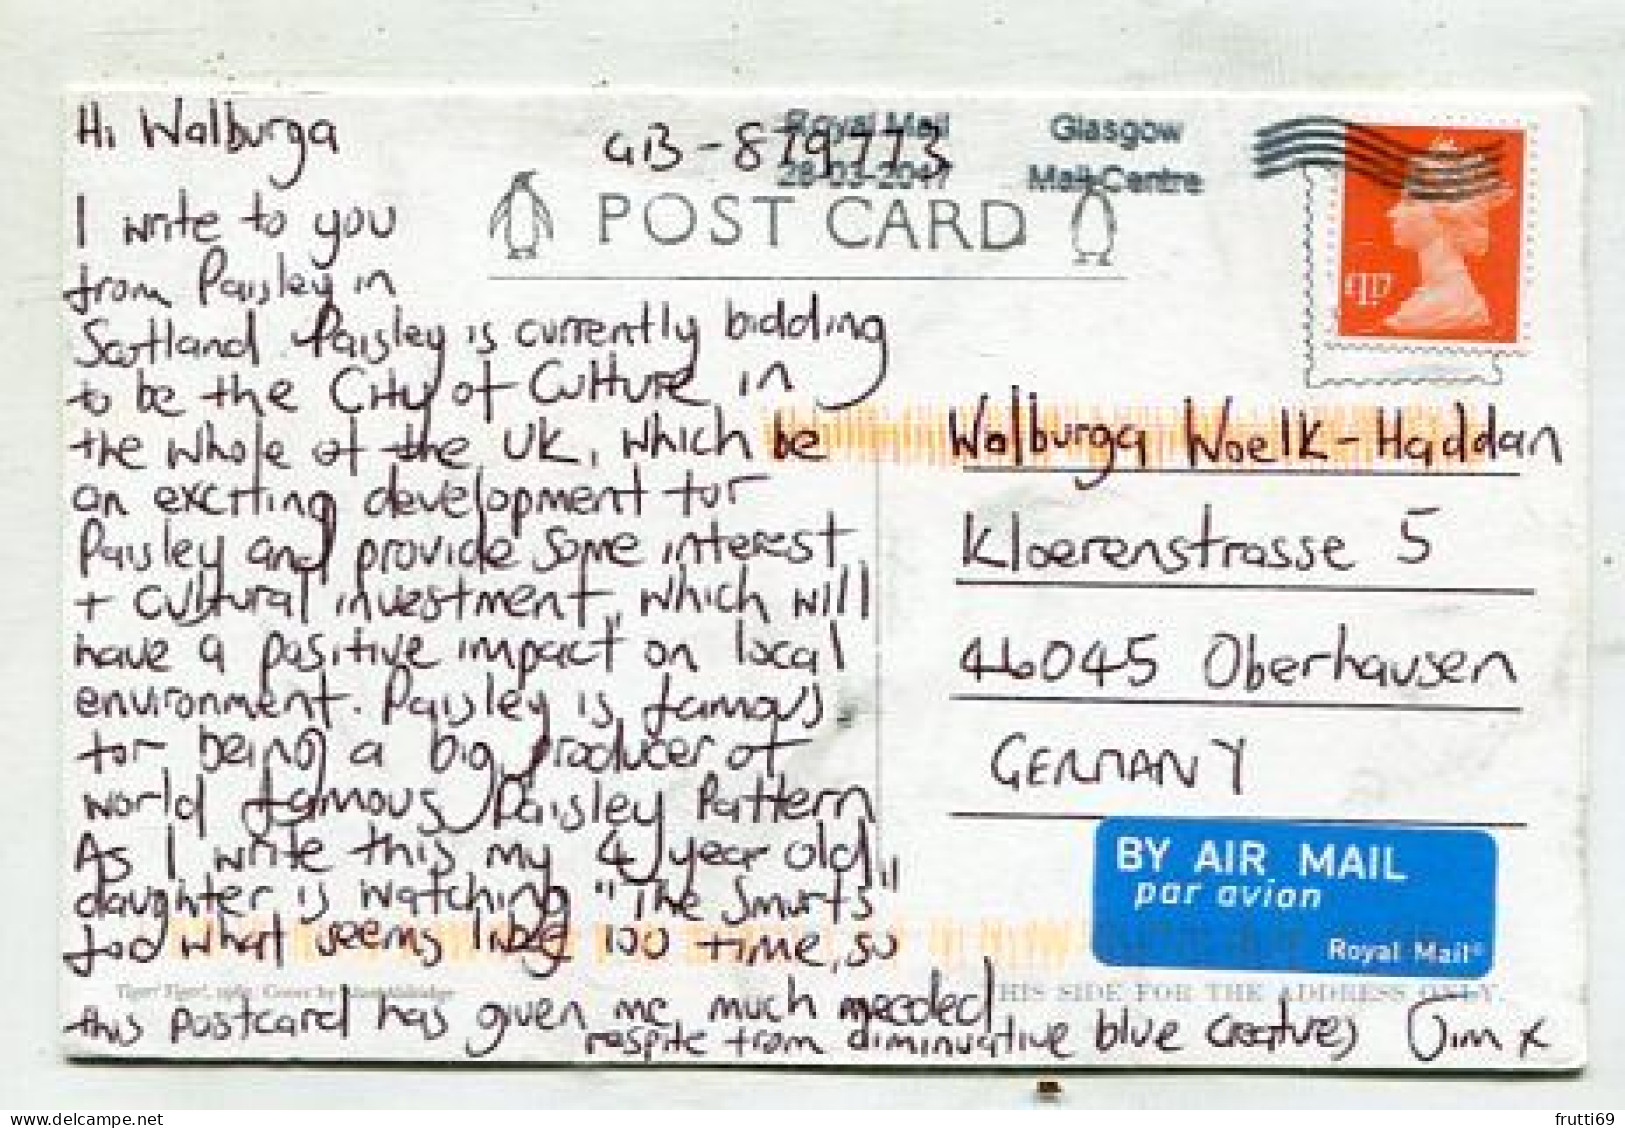 Hi Walburga
GB-879773
Royal Mail Glasgow
28-03-2017 Mail Centre
POST CARD
I write to you
from Paisley in
Scotland. Paisley is currently bidding
to be the City of Culture in
the whole of the UK, which be
an exciting development for
Paisley and provide some interest
+ cultural investment, which will
have a positive impact on local
environment. Paisley is famous
for being a big producer of
world famous Paisley Pattern
As I write this my 4 year old
daughter is watching "The Smurfs"
for what seems like 100 time, so
this postcard has given me much needed
respite from diminuative blue creatures Jim x
Walburga Woelk-Haddan
Kloerenstrasse 5
46045 Oberhausen
GERMANY
BY AIR MAIL
par avion
Royal Mail®
Tiger! Tiger!, Cover by
THIS SIDE FOR THE ADDRESS ONLY.
frutti69